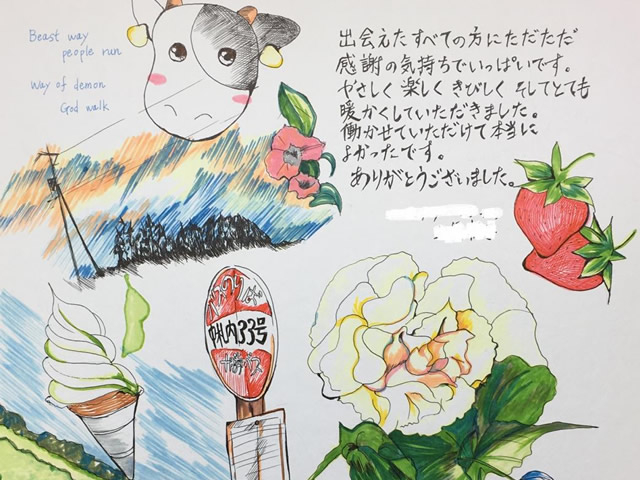 Beast way
people run
Way of demon
God walk
出会えたすべての方にただただ
感謝の気持ちでいっぱいです。
やさしく 楽しく きびしく そしてとても
暖かくしていただきました。
働かせていただけて本当に
よかったです。
ありがとうございました。
内33号
十勝バス